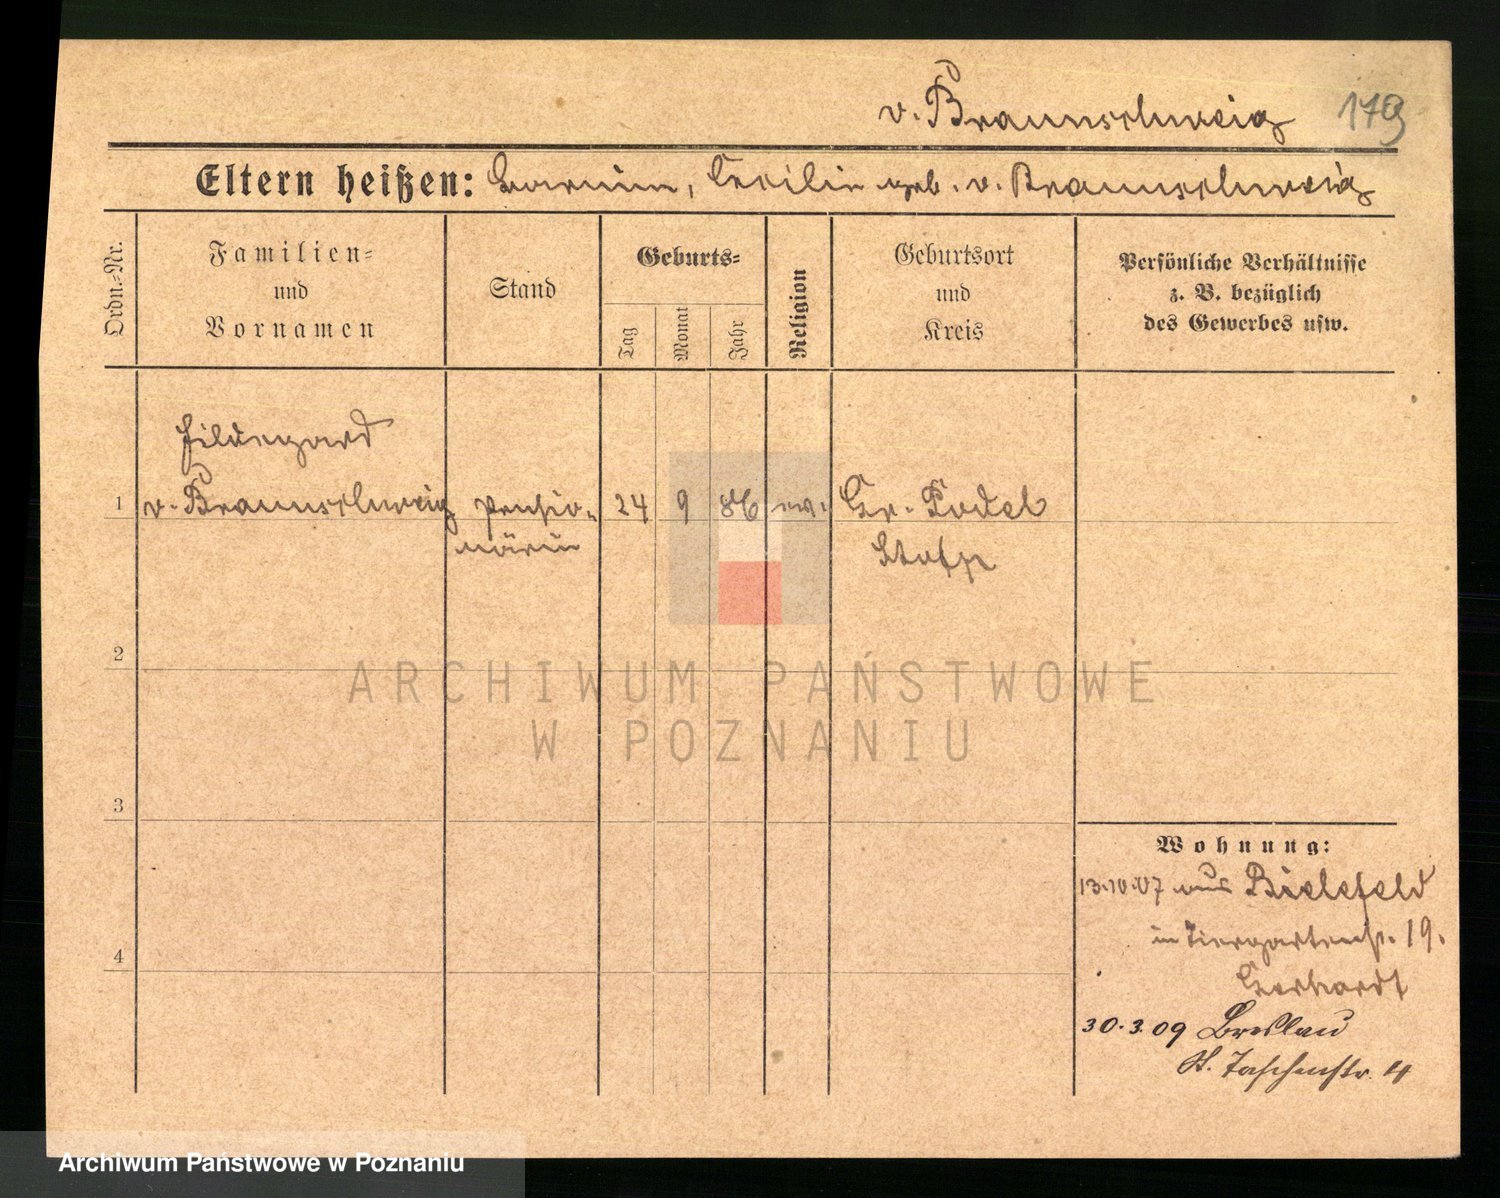 v. Braunschweig 179
Eltern heißen: Cäcilie geb. v. Braunschweig
Ordn.-Nr.
Familien-
und
Vornamen
Stand
Geburts-
Tag
Monat
Jahr
Religion
Geburtsort
und
Kreis
Persönliche Verhältnisse
z. B. bezüglich
des Gewerbes usw.
Hildegard
1 v. Braunschweig Pensio- 24 9 86 ev. Gr. Podel
närin Stolp
2
3
4
Wohnung:
13.10.07 aus Bielefeld
in Tiergartenstr. 19.
Gerhardt
30.3.09 Breslau
Taschenstr. 4
ARCHIWUM PAŃSTWOWE
W POZNANIU
Archiwum Państwowe w Poznaniu